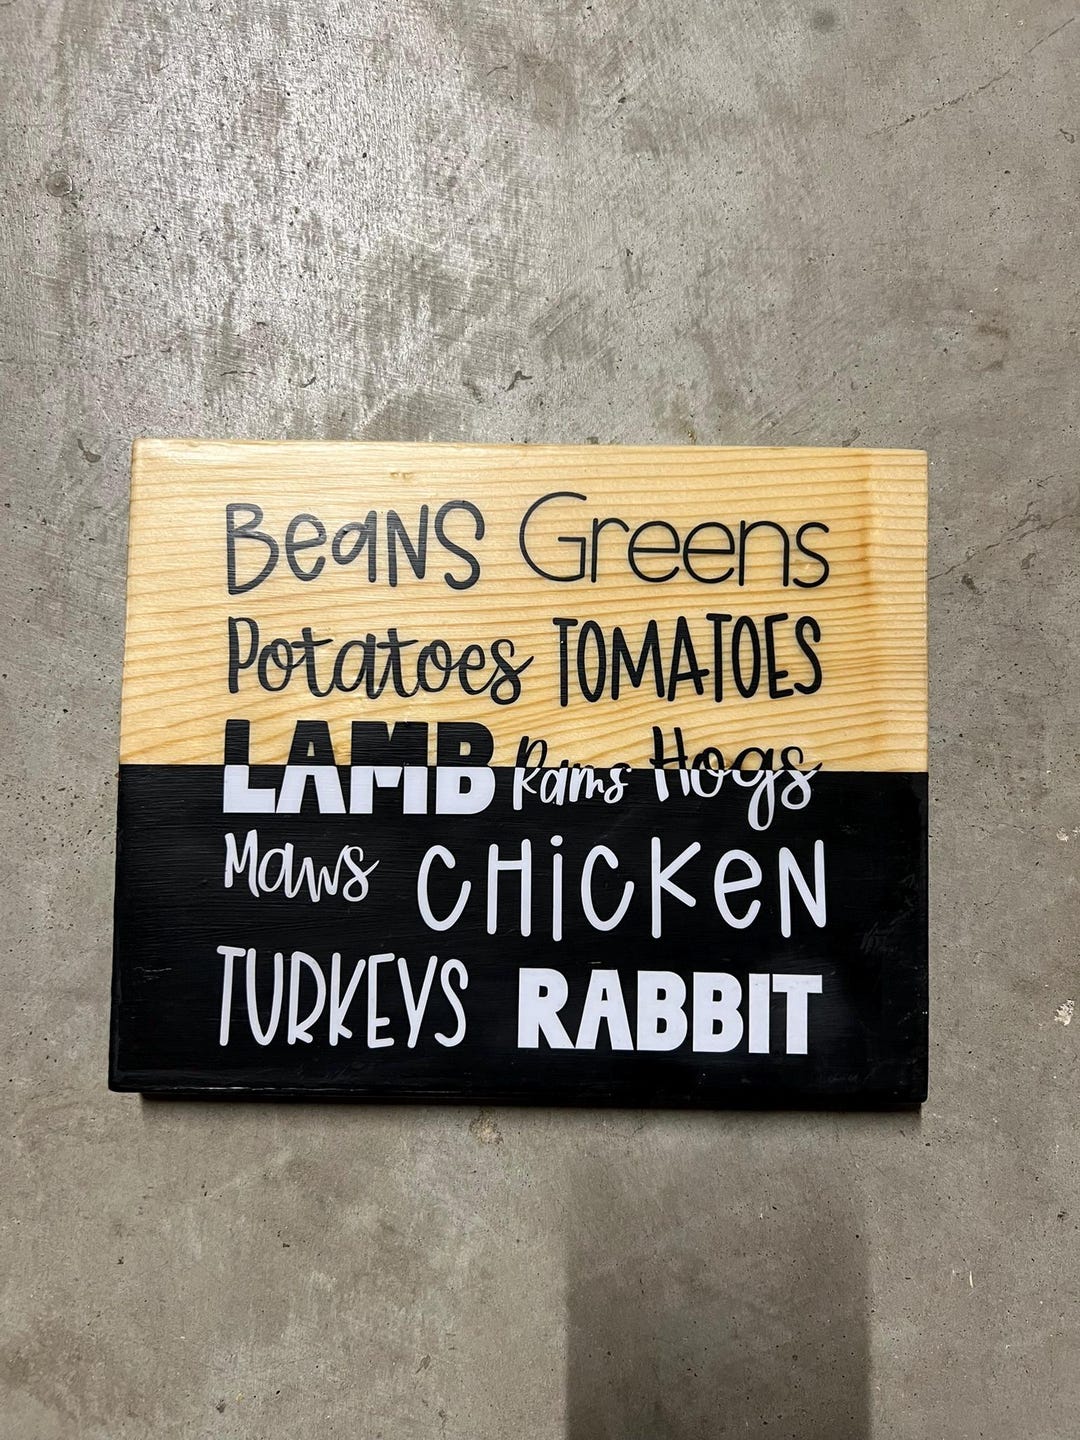 BeaNS Greens
Potatoes TOMATOES
LAMB Rams Hogs
Maws CHiCKeN
TURKEYS RABBIT